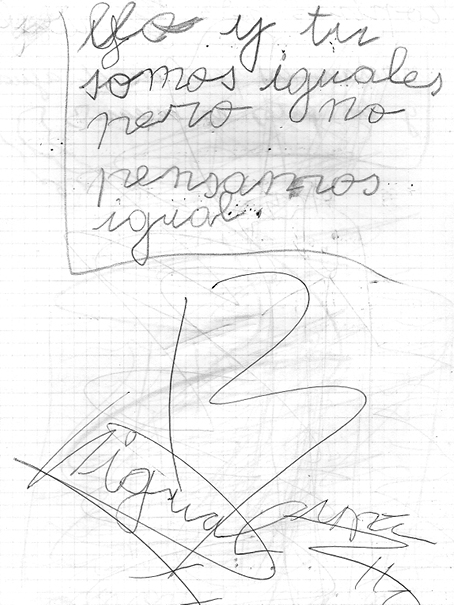 Yo y tu
somos iguales
pero no
pensamos
igual.
B